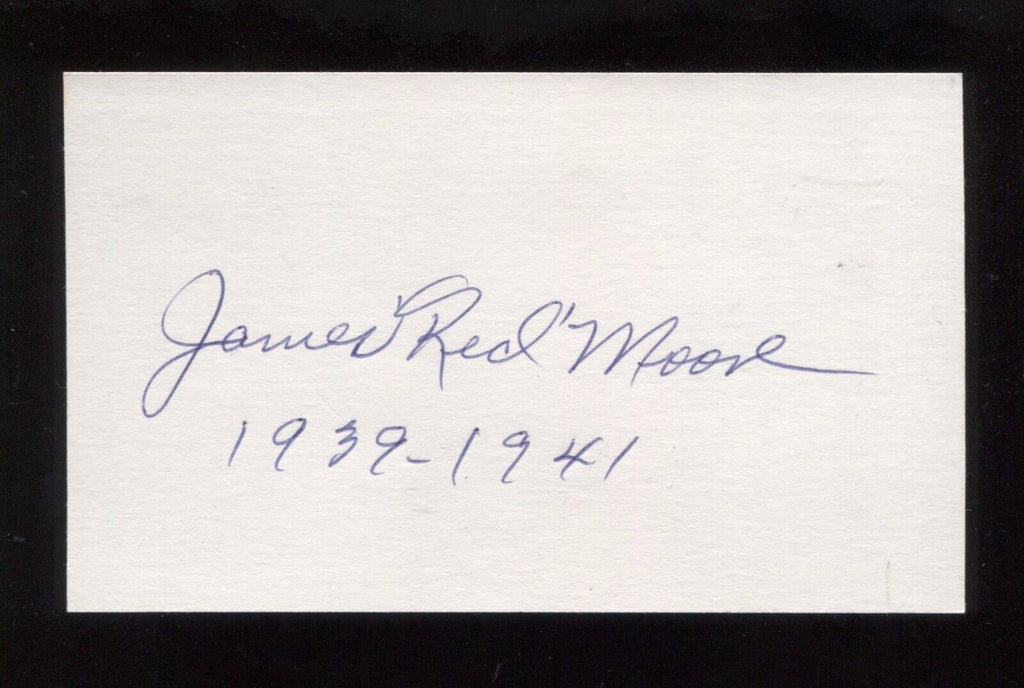 James "Red" Moore
1939-1941